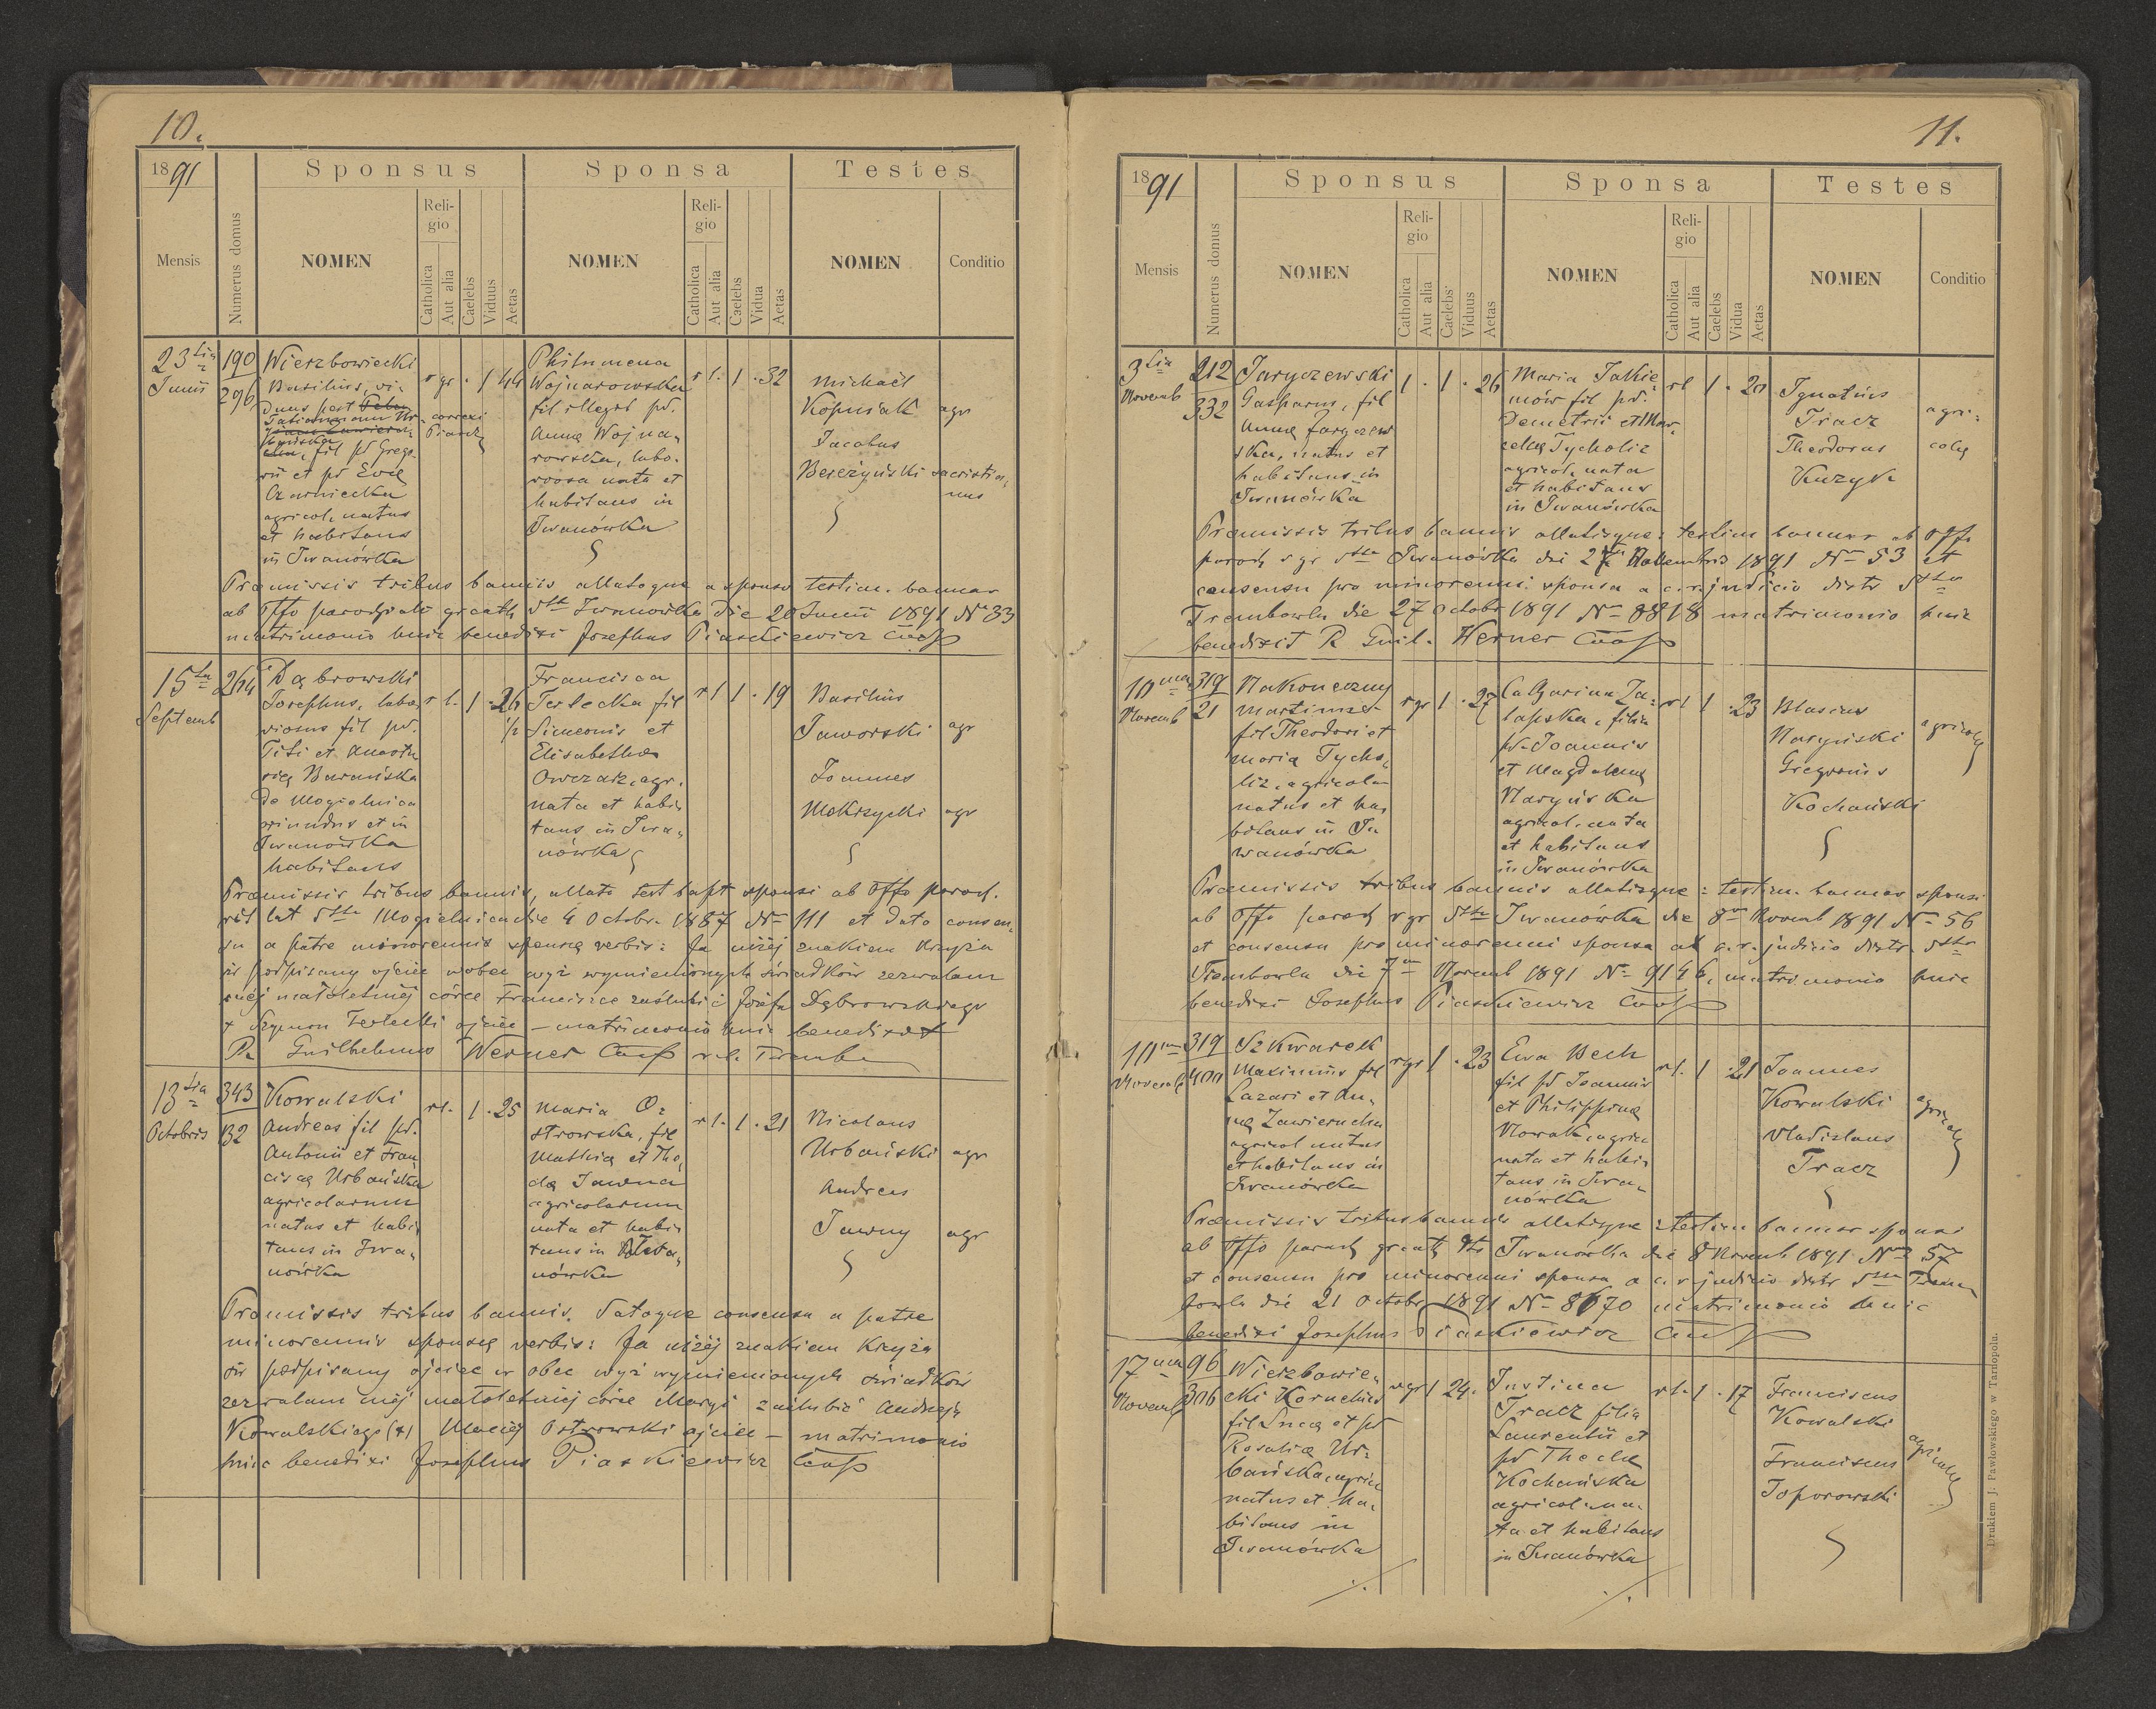 10.
1891
Sponsus
Sponsa
Testes
Mensis
Numerus domus
NOMEN
Religio
Catholica
Aut alia
Caelebs
Viduus
Aetas
NOMEN
Religio
Catholica
Aut alia
Caelebs
Vidua
Aetas
NOMEN
Conditio
23tia
Junii
190
296
Wierzbowiecki
Basilius, vi-
duus post
fil pd Grego-
rii et pd Evę
Czarniecka
agricol. natus
et habitans
in Iwanówka
r gr. 1 44
Philumena
Wojnarowska
fil illegit pd.
Anną Wojna-
rowska, labo-
riosa nata et
habitans in
Iwanówka
r l. 1 . 32
Michaël
Kopniak agr
Jacobus
Bereżyński sacristia-
nus
Praemissis tribus bannis allatoque a sponso testim. bannor
ab Offo parochiali gr cath dtto Iwanówka die 20 Junii 1891 No 33
matrimonio huic benedixi Josephus Piaskiewicz Coop
15ta
Septemb
264
Dąbrowski
Josephus, labo-
riosus fil pd.
Titi et Anasta-
sią Barańska
de Mogielnica
oriundus et in
Iwanówka
habitans
r l. 1 . 26
1/2
Francisca
Terlecka fil
Simeonis et
Elisabethae
Owczar, agr.
nata et habi-
tans in Iwa-
nówka
r l 1 . 19
Basilius
Jaworski agr
Joannes
Mokrzycki agr
Praemissis tribus bannis, allato test bapt sponsi ab Offo paroch.
rit lat dtto Mogielnica die 4 Octobr. 1887 No 111 et dato consen-
su a patre minorennis sponsę verbis: Ja niżéj znakiem krzyża
św podpisany ojciec wobec wyż wymienionych świadków zezwalam
méj małoletniéj córce Franciszce zaślubić Józefa Dąbrowskiego
+ Szymon Terlecki ojciec – matrimonio huic benedixit
Guilhelmus Werner Coop r. l. Tremb
13tia
Octobris
343
132
Kowalski
Andreas fil pd.
Antonii et Fran-
ciscą Urbańska
agricolarum
natus et habi-
tans in Iwa-
nówka
rl. 1 . 25
Maria O-
strowska, fil
Mathią et The-
clą Jawna
agricolarum
nata et habi-
tans in Iwa-
nówka
r l. 1 . 21
Nicolaus
Urbański agr
Andreas
Jawny agr
Praemissis tribus bannis. Datoque consensu a patre
minorennis sponsę verbis: Ja niżéj znakiem krzyża
św podpisany ojciec w obec wyż wymienionych świadków
zezwalam méj małoletniéj córce Maryi zaślubić Andrzeja
Kowalskiego (+) Maciéj Ostrowski ojciec – matrimonio
huic benedixi Josephus Piaskiewicz Coop
11.
1891
Sponsus
Sponsa
Testes
Mensis
Numerus domus
NOMEN
Religio
Catholica
Aut alia
Caelebs
Viduus
Aetas
NOMEN
Religio
Catholica
Aut alia
Caelebs
Vidua
Aetas
NOMEN
Conditio
3tia
Novemb
212
332
Jaryczewski
Gasparus, fil
Anną Jaryczew
ska, natus et
habitans in
Iwanówka
1 . 1 . 26
Maria Jakie-
mów fil pd.
Demetrii et Mar-
celą Tycholiz
agricol. nata
et habitans
in Iwanówka
rl 1 . 20
Ignatius
Tracz
Theodorus
Kuzyk
agri-
colę
Praemissis tribus bannis allatisque: testim bannor ab Offo
paroch r gr dtto Iwanówka die 2 Novembris 1891 No 53 et
consensu pro minorenni sponsa a c. r. judicio distr dtto
Trembowla die 27 Octobr 1891 No 8818 matrimonio huic
benedixit R Guil. Werner Coop
10ma
Novemb
319
21
Nakoneczny
Martinus
fil Theodori et
Maria Tycho-
liz, agricola
natus et ha-
bitans in I-
wanówka
rgr 1 . 27
Catharina Za-
łapska, filia
pd. Joannis
et Magdalena
Naryńska
agricol. nata
et habitans
in Iwanówka
rl 1 . 23
Blasius
Naryński
Gregorius
Kochański
agricolę
Praemissis tribus bannis allatisque: testim. bannor sponsi
ab Offo paroch r gr dtto Iwanówka die 8va Novemb 1891 No 56
et consensu pro minorenni sponsa ab c. r. judicio distr. dtto
Trembowla die 7ma Novemb 1891 No 9146, matrimonio huic
benedixi Josephus Piaskiewicz Coop
10ma
Novemb
319
400
Szkwarek
Maximus fil
Lazari et An-
ną Zawierucha
agricol natus
et habitans in
Iwanówka
rgr 1 . 23
Ewa Bech
fil pd Joannis
et Philippiną
Nowak, agric
nata et habi-
tans in Iwa-
nówka
rl. 1 . 21
Joannes
Kowalski
Vladislaus
Tracz
agricolę
Praemissis tribus bannis allatisque: testim bannor sponsi
ab Offo paroch gr cath dtto Iwanówka die 8 Novemb 1891 No 57
et consensu pro minorenni sponsa a c. r judicio distr dtto Trem-
bowla die 21 Octobr 1891 No 8670 matrimonio huic
benedixi Josephus Piaskiewicz Coop
17ma
Novemb
96
306
Wierzbowie-
cki Kornelius
fil Lucę et pd
Rosalia Ur-
bańska, agric
natus et ha-
bitans in
Iwanówka
rgr 1 24.
Justina
Tracz filia
Laurentii et
pd Thecla
Kochańska
agricol. na-
ta et habitans
in Iwanówka
rl. 1 . 17
Franciscus
Kowalski
Franciscus
Toporowski
agricolę
Drukiem J. Pawłowskiego w Tarnopolu.